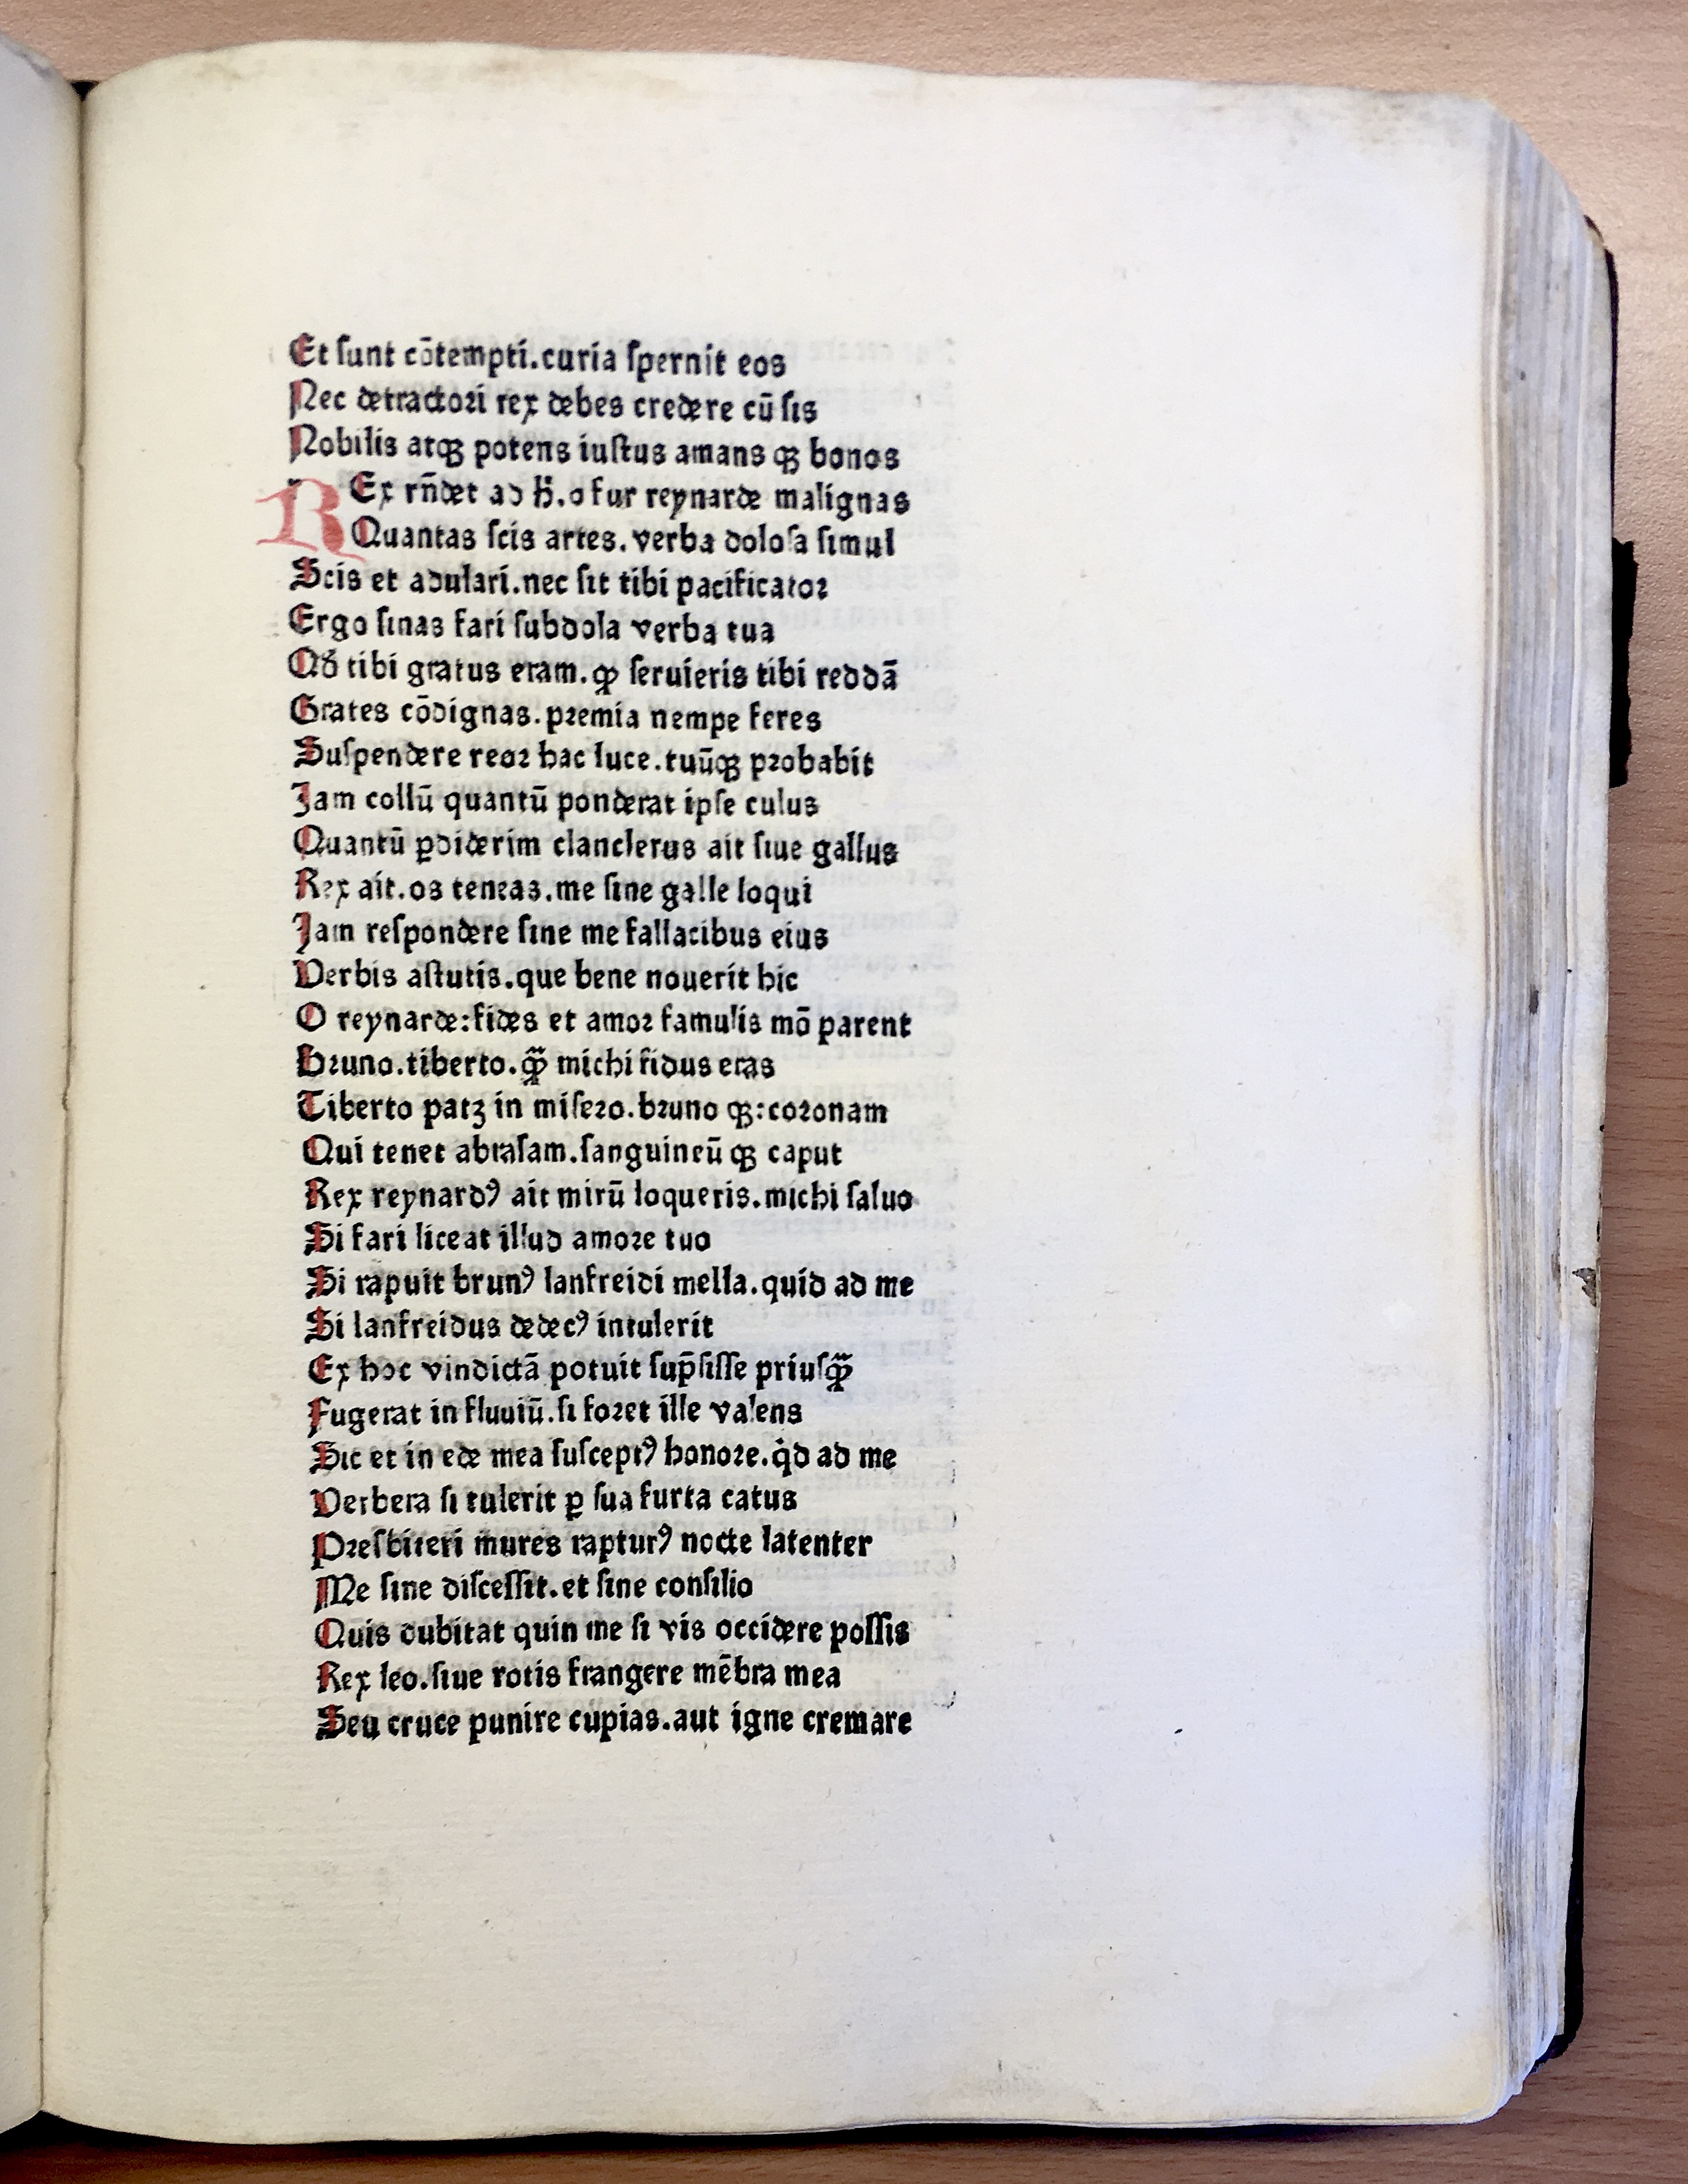 Et ſunt cōtempti.curia ſpernit eos
Nec detractoꝛi rex debes credere cū ſis
Nobilis atqꝫ potens iuſtus amans qꝫ bonos
REx rn̄det ad h̄.o fur reynarde malignas
Quantas ſcis artes.verba doloſa ſimul
Scis et adulari.nec ſit tibi pacificatoꝛ
Ergo ſinas fari ſubdola verba tua
tibi gratus eram.ꝙ ſeruieris tibi reddā
Grates cōdignas.pꝛemia nempe feres
Suſpendere reoꝛ hac luce.tuūqꝫ pꝛobabit
Jam collū quantū ponderat ipſe culus
Quantū ꝑdiderim clanclerus ait ſiue gallus
Rex ait.os teneas.me ſine galle loqui
Jam reſpondere ſine me fallacibus eius
Verbis aſtutis.que bene nouerit hic
O reynarde:fides et amoꝛ famulis mō parent
Bꝛuno.tiberto.ꝙ̃ michi fidus eras
Tiberto patꝫ in miſeꝛo.bꝛuno qꝫ:coꝛonam
Qui tenet abraſam.ſanguineū qꝫ caput
Rex reynardꝰ ait mirū loqueris.michi ſaluo
Si fari liceat illud amoꝛe tuo
Si rapuit brunꝰ lanfreidi mella.quid ad me
Si lanfreidus dedecꝰ intulerit
Ex hoc vindictā potuit ſup̄ſiſſe priuſꝙ̃
Fugerat in fluuiū.ſi foꝛet ille valens
Sic et in ede mea ſuſceptꝰ honoꝛe.qͥd ad me
Verbera ſi tulerit ꝑ ſua furta catus
Pꝛeſbiteri mures rapturꝰ nocte latenter
Me ſine diſceſſit.et ſine conſilio
Quis dubitat quin me ſi vis occidere poſſis
Rex leo.ſiue rotis frangere mēbra mea
Seu cruce punire cupias.aut igne cremare